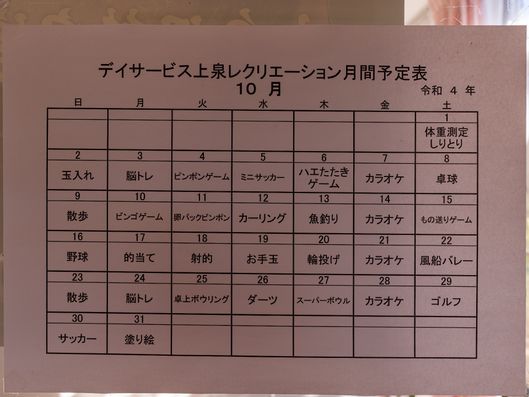 デイサービス上泉レクリエーション月間予定表
10 月
令和 4 年
日 月 火 水 木 金 土
1
体重測定
しりとり
2 3 4 5 6 7 8
玉入れ 脳トレ ピンポンゲーム ミニサッカー ハエたたき
ゲーム カラオケ 卓球
9 10 11 12 13 14 15
散歩 ビンゴゲーム 卵パックピンポン カーリング 魚釣り カラオケ もの送りゲーム
16 17 18 19 20 21 22
野球 的当て 射的 お手玉 輪投げ カラオケ 風船バレー
23 24 25 26 27 28 29
散歩 脳トレ 卓上ボウリング ダーツ スーパーボウル カラオケ ゴルフ
30 31
サッカー 塗り絵